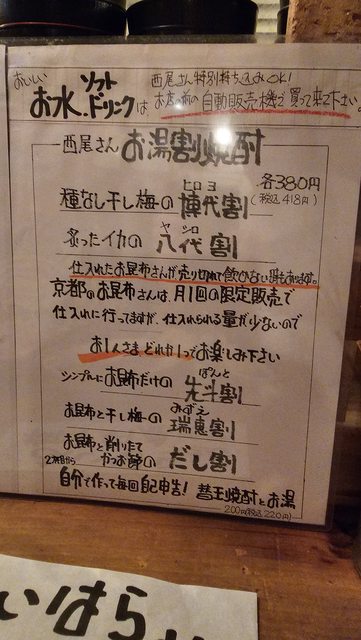 おいしい お水、ソフトドリンクは
西尾さん特別持ち込みOK!
お店の前の自動販売機で買って来て下さい。
西尾さん お湯割焼酎
各380円
(税込418円)
ヒロヨ
種なし干し梅の 博代割
ヤシロ
炙ったイカの 八代割
仕入れたお昆布さんが売り切れで飲めない時もあります。
京都のお昆布さんは、月1回の限定販売で
仕入れに行ってますが、仕入れられる量が少ないので
お1人さまどれか1つでお楽しみ下さい
ぽんと
シンプルにお昆布だけの 先斗割
みずえ
お昆布と干し梅の 瑞恵割
お昆布と削りたて
かつお節の だし割
2杯目から
自分で作って毎回自己申告! 替玉焼酎とお湯
200円(税込220円)
いはら